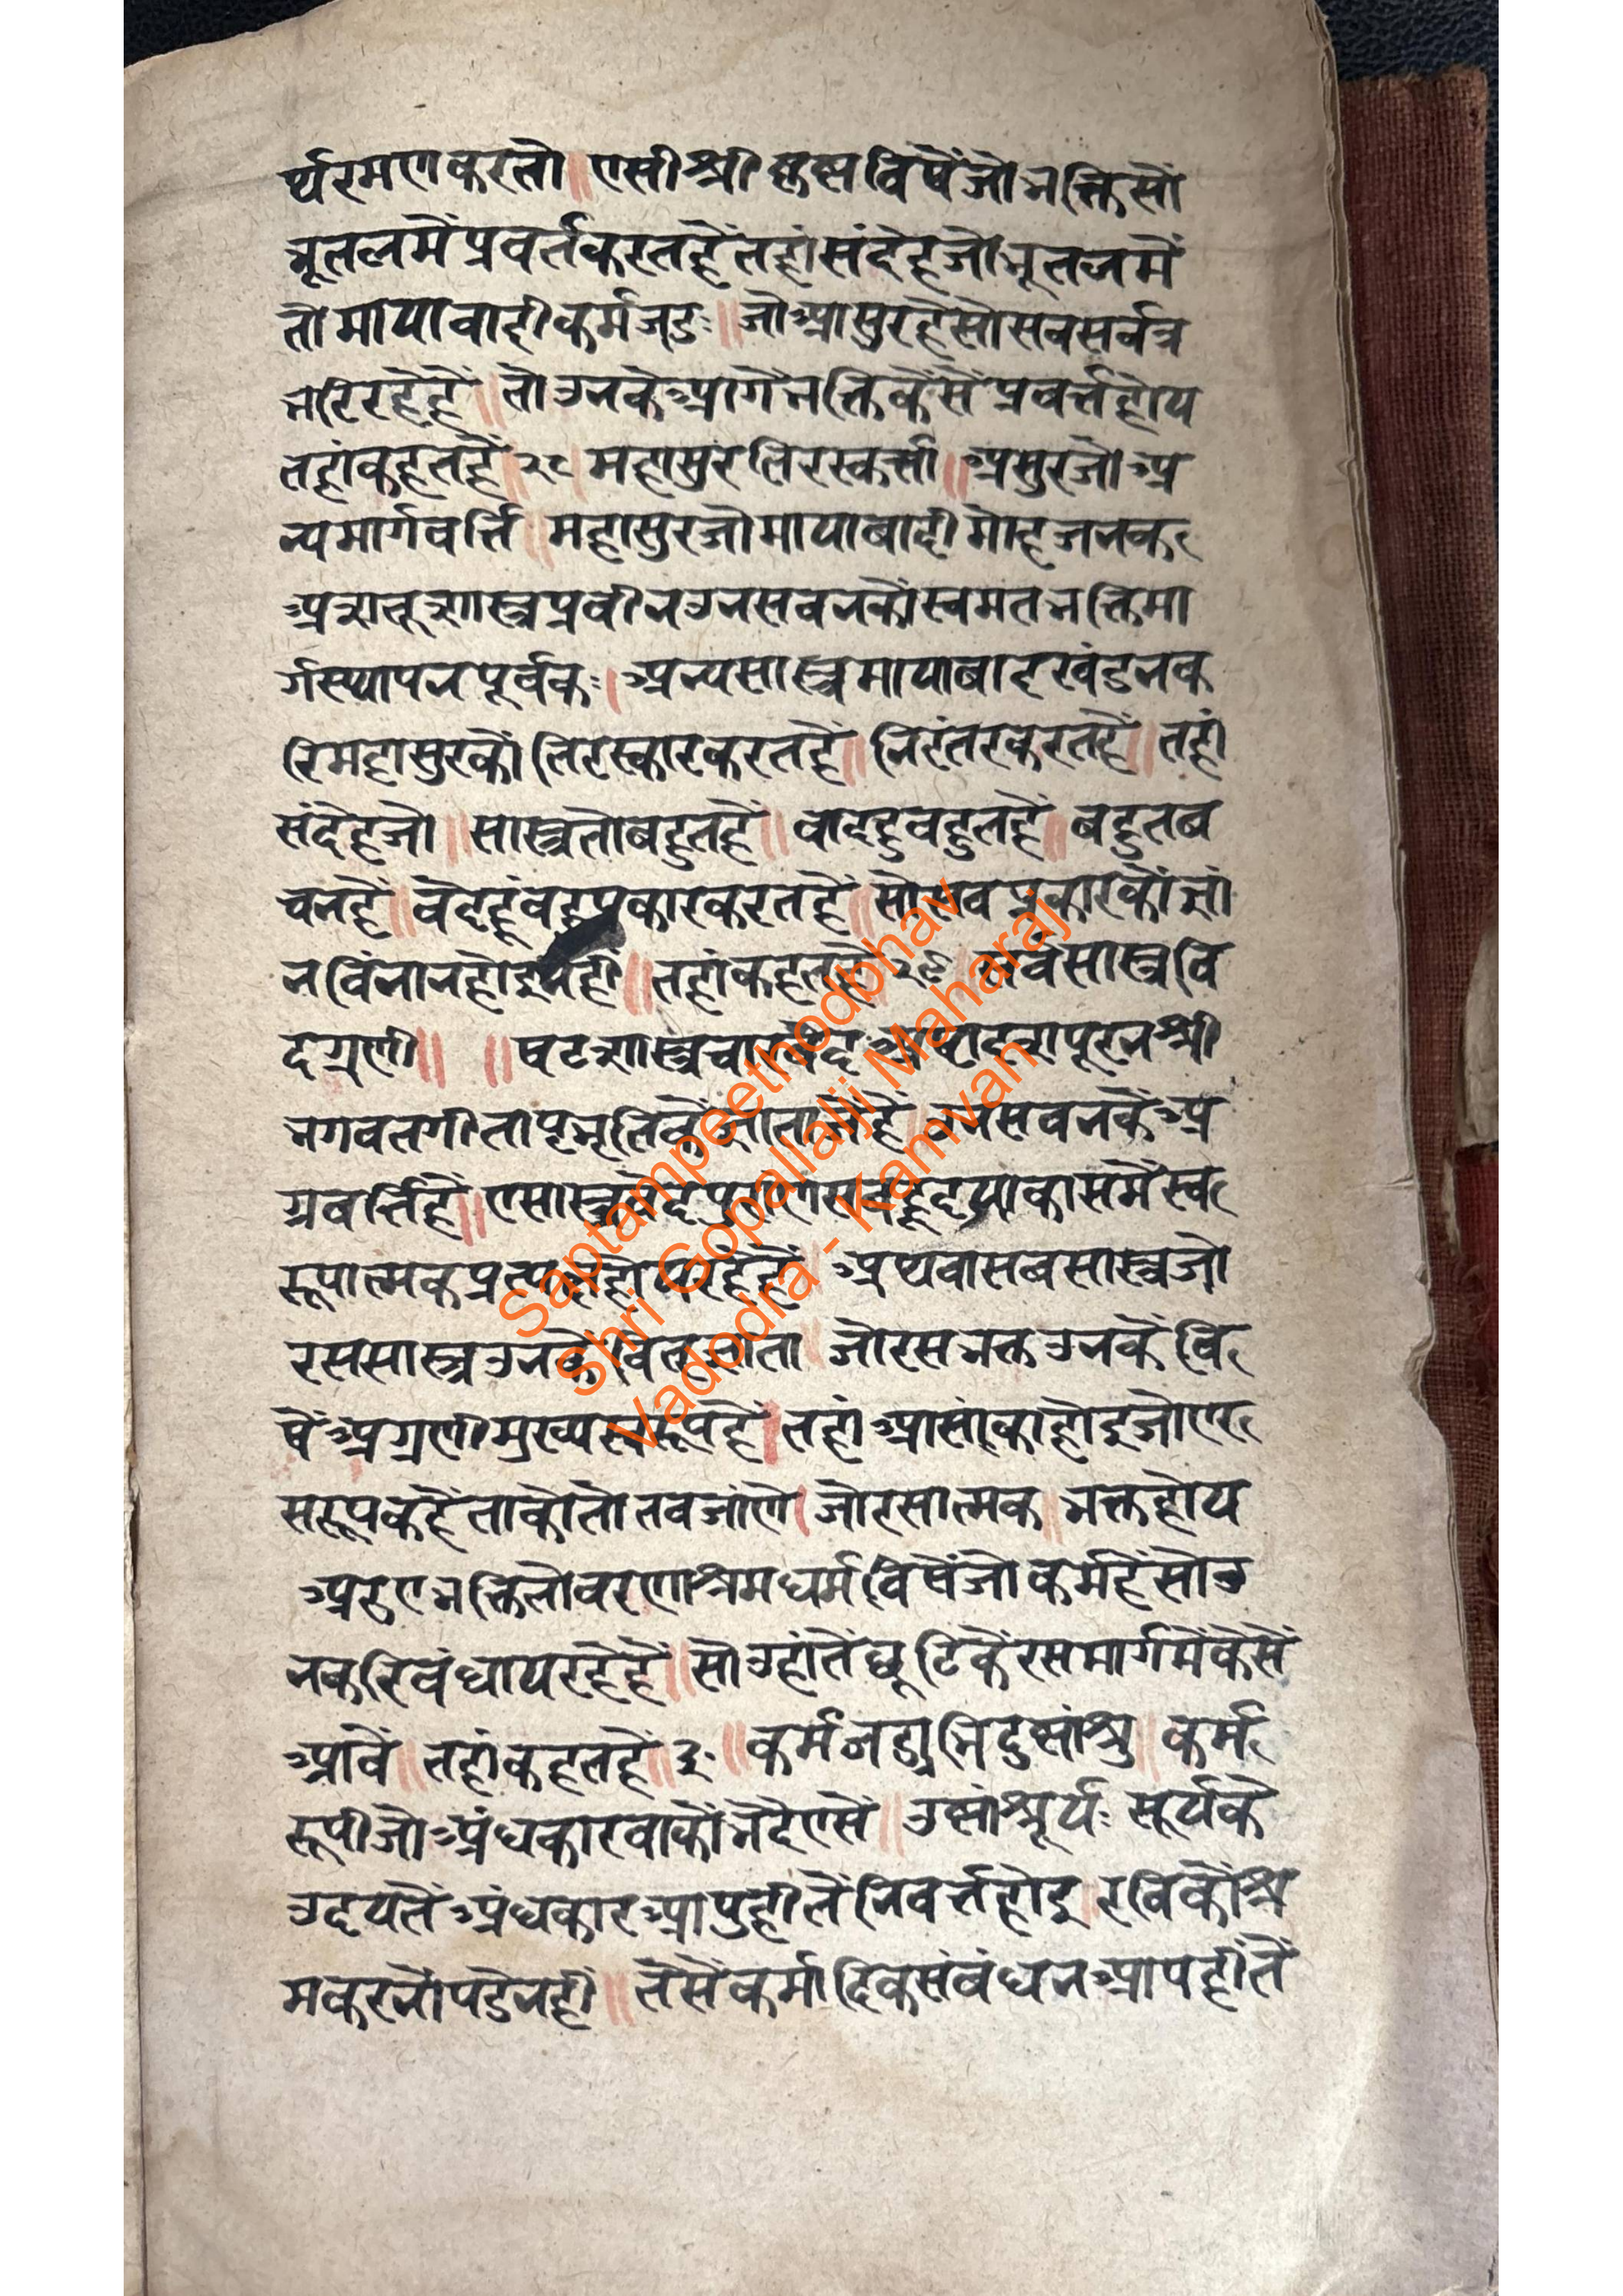 र्थरमणकरतो॥एसीश्रीकृष्णविषैंजोभक्तिसों
भूतलमेंप्रवर्तकरतहैंतहांसंदेहजोभूतलमें
तोमायावादीकर्मजडः॥जोआसुरहैसोसबसर्वत्र
भरिरहेहैं॥तोउनकेआगेंभक्तिकैसेंप्रवर्त्तहोय
तहांकहतहैं॥२८।महासुरतिरस्कर्त्ता॥असुरजोअ
न्यमार्गवर्त्ति॥महासुरजोमायाबादीमोहजनक
शास्त्रप्रवीनउनसबनकोंस्वमतभक्तिमा
र्गस्थापनपूर्वकः।अन्यसास्त्रमायाबादखंडनक
रिमहासुरकों तिरस्कारकरतहैं॥निरंतरकरतहैं॥तहां
संदेहजो॥सास्त्रतोबहुतहैं॥वादहुबहुतहैं॥बहुतब
चनहैं॥वेदहूंबहुप्रकारकरतहैं॥सोसबप्रकारकोंज्ञां
नविंनानहोइनहीं॥तहांकहतहैं२९॥सर्वसास्त्रवि
दग्रणी॥ ॥षटशास्त्रचारवेदअष्टादशपूरनश्री
भगवतगीताप्रभृतिकेंज्ञाताजेहैं॥उनसबनकेअ
ग्रवर्त्तिहैं॥एसास्त्रवेदपुराणसबहूहृदयाकासमेंस्व
रूपात्मकप्रत्यक्षहोयरहेहैं॥अथवासबसास्त्रजो
रससास्त्रउनकेंवित्‌ज्ञाता॥जोरसभक्तउनकेंवि
षेंअग्रणीमुख्यस्वरूपहैं।तहांआसांकाहोइजोएर
सरूपकहैंताकोतोतबजांणे।जोरसात्मक॥भक्तहोय
भक्तितोवरणाश्रमधर्मविषेंजोकर्महेंसोउ
नकरिबंधायरहेहैं॥सोउहांतेंछूटिकेंरसमार्गमेंकैसें
आवें॥तहांकहतहैं॥३०॥कर्म कर्म
रूपीजोअंधकारवाकोंभेदेएसे॥उष्मांश्रूर्यः सूर्यके
उदयतेंअंधकारआपुहीतेंनिवर्त्तहोइ॥रविकोंश्र
मकरनोपडेनही॥तेसेंकर्मादिकसंबंधनआपहीतें
Saptampeethodbhav
Shri Gopallalji Maharaj
Vadodra - Kamvan